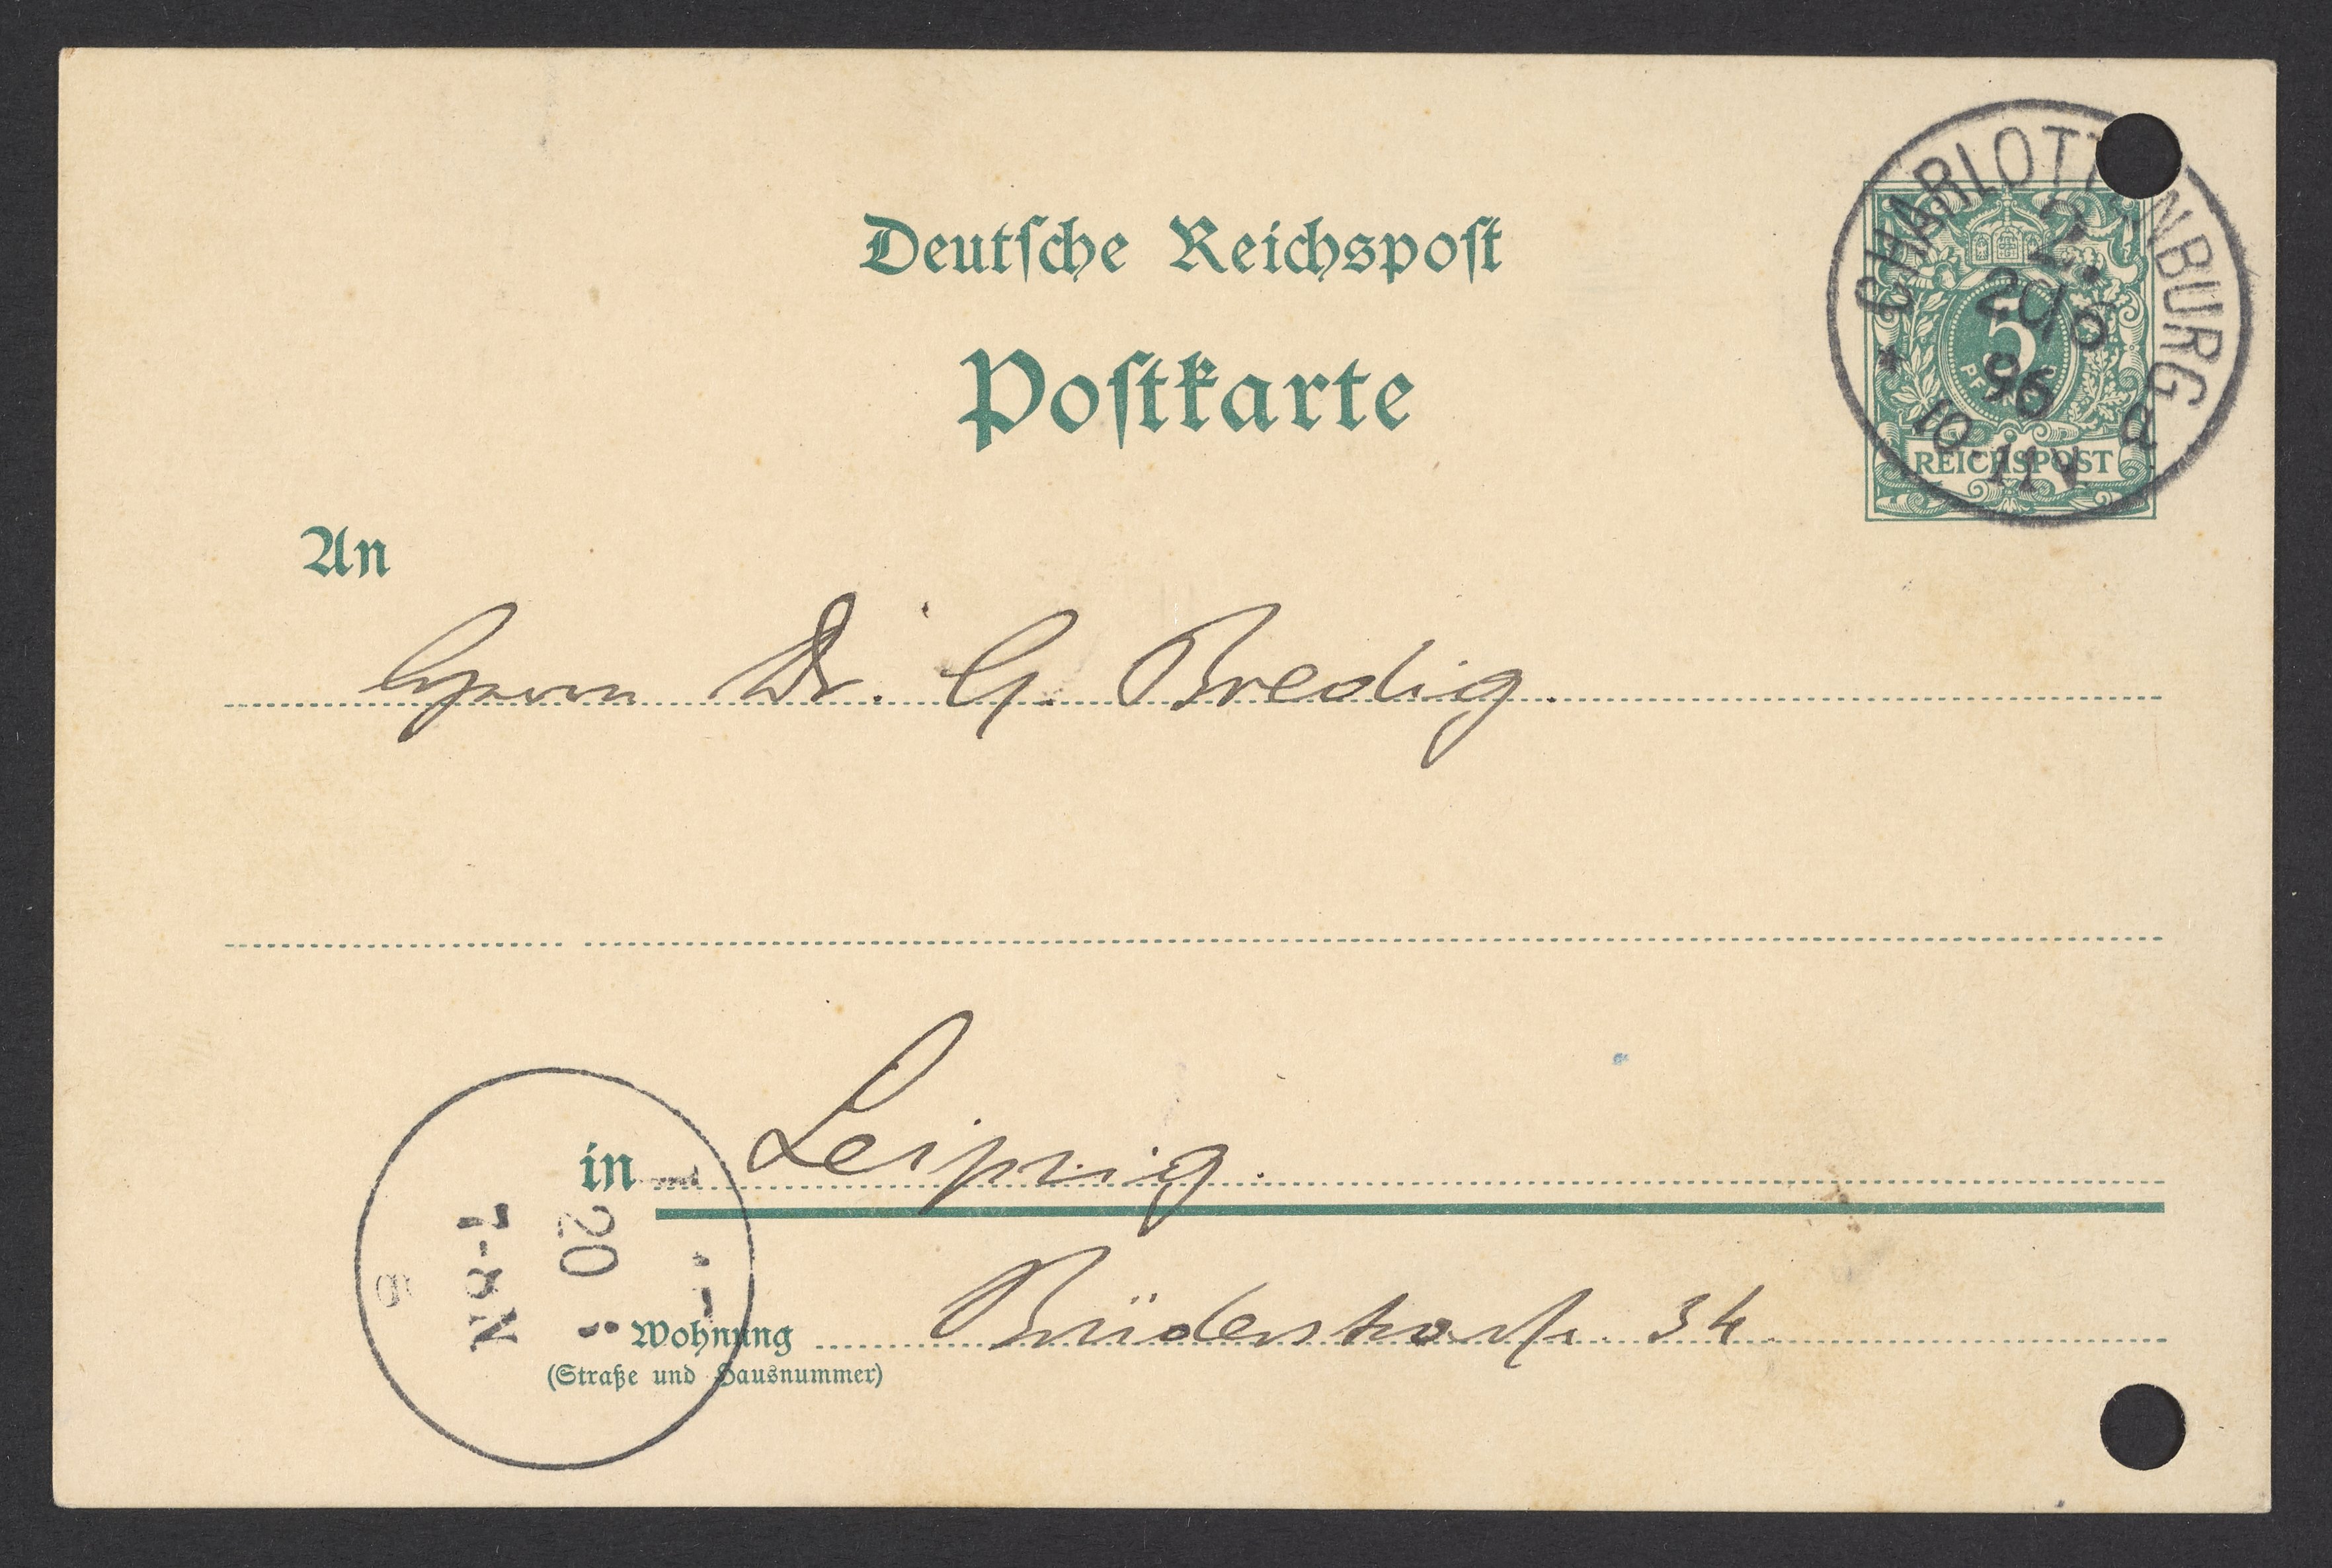 Deutsche Reichspost
Postkarte
CHARLOTTENBURG
2.
20/6
96
10-11V
* a
5
PFENNIG
REICHSPOST
An
Herrn Dr. G. Bredig.
in Leipzig.
Wohnung Brüderstrasse. 34.
(Straße und Hausnummer)
20
7-8N
8